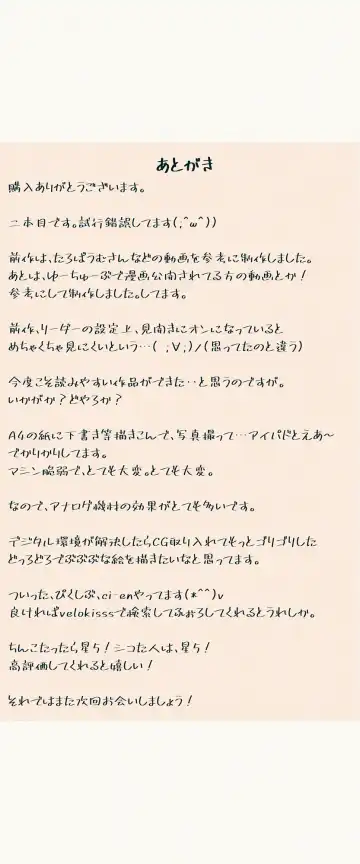 あとがき
購入ありがとうございます。
二本目です。試行錯誤してます(;^ω^))
前作は、たろぱうむさんなどの動画を参考に制作しました。
あとは、ゆーちゅーぶで漫画公開されてる方の動画とか！
参考にして制作しました。してます。
前作、リーダーの設定上、見開きにオンになっていると
めちゃくちゃ見にくいという…( ;∀;)/(思ってたのと違う)
今度こそ読みやすい作品ができた‥と思うのですが。
いかがか？どやろか？
A4の紙に下書き等描きこんで、写真撮って…アイパドとえあ〜
でかりかりしてます。
マシン脆弱で、とても大変。とても大変。
なので、アナログ機材の効果がとても多いです。
デジタル環境が解決したらCG取り入れてもっとゴリゴリした
どっろどろでぶぶぶな絵を描きたいなと思ってます。
ついった、ぴくしぶ、ci-enやってます(*^^)v
良ければvelokisssで検索してふぉろしてくれるとうれしか。
ちんこたったら星5！シコた人は、星5！
高評価してくれると嬉しい！
それではまた次回お会いしましょう！